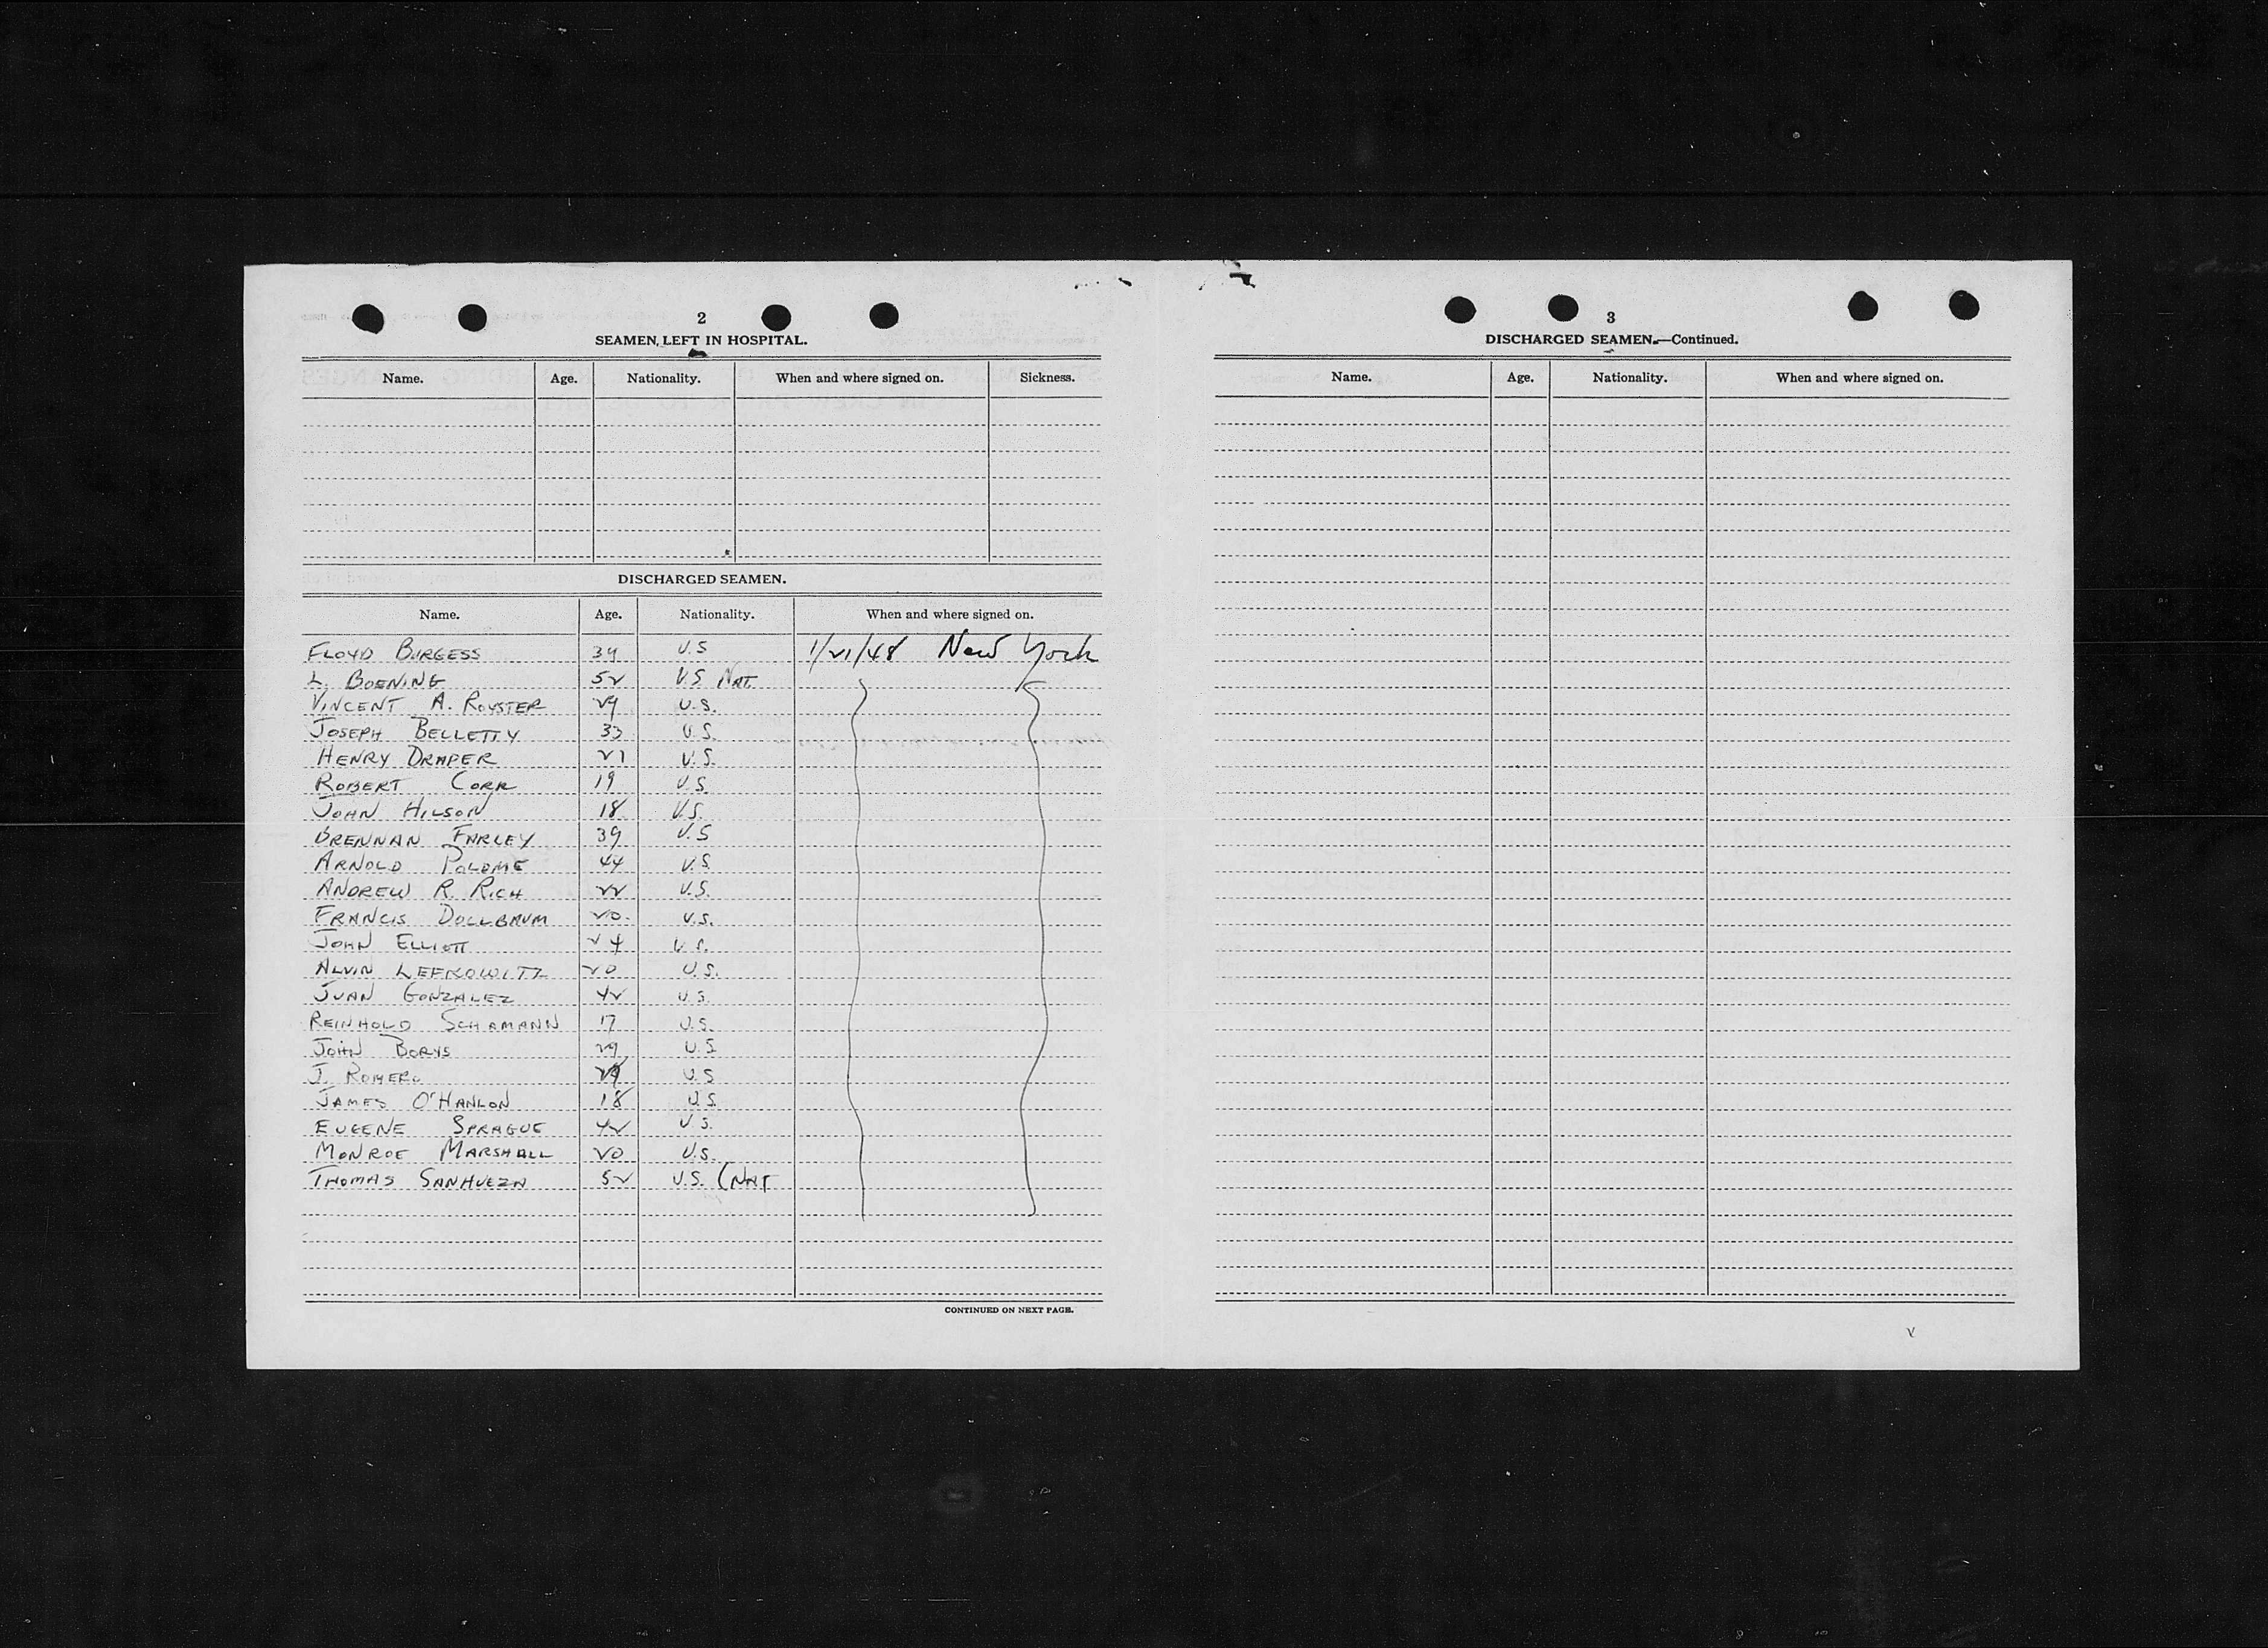 2
SEAMEN LEFT IN HOSPITAL.
Name. Age. Nationality. When and where signed on. Sickness.
DISCHARGED SEAMEN.
Name. Age. Nationality. When and where signed on.
FLOYD BURGESS 39 U.S 1/21/48 New York
L. BOENING 52 U.S NAT.
VINCENT A. ROYSTER 29 U.S.
JOSEPH BELLETTY 33 U.S.
HENRY DRAPER 21 U.S.
ROBERT CORR 19 U.S.
JOHN HILSON 18 U.S.
BRENNAN FARLEY 39 U.S
ARNOLD POLOME 44 U.S.
ANDREW R. RICH 22 U.S.
FRANCIS DOLLBAUM 20. U.S.
JOHN ELLIOTT 24 U.S.
ALVIN LEFKOWITZ 20 U.S.
JUAN GONZALEZ 42 U.S.
REINHOLD SCHAMANN 17 U.S.
JOHN BORYS 29 U.S
J. ROMERO U.S
JAMES O'HANLON 18 U.S.
EUGENE SPRAGUE 42 U.S.
MONROE MARSHALL 20 U.S.
THOMAS SANHUEZA 52 U.S. (NAT
CONTINUED ON NEXT PAGE.
3
DISCHARGED SEAMEN.—Continued.
Name. Age. Nationality. When and where signed on.